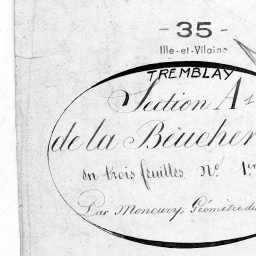 - 35 -
Ille-et-Vilaine
TREMBLAY
Section A
de la Béucher
en trois feuilles. N.º 1er
Par Moncuvy, Géomètre du